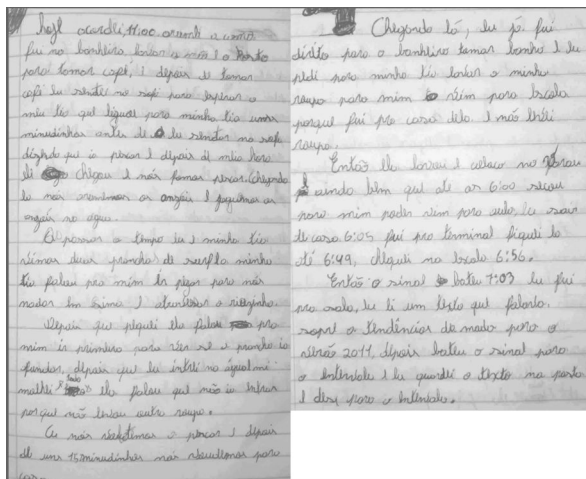 hoje acordei 11:00 arrumei a cama
fui no banheiro lavar a mão e o rosto
para tomar café, e depois de tomar
café eu sentei no sofá para esperar o
meu tio que ligou para minha tia uns
minutinhos antes de eu sentar no sofá
dizendo que ia pescar e depois de meia hora
ele chegou e nois fomos pescar. Chegando
la nois arrumamos os anzois e joguemos os
anzois na água.
O passar o tempo eu e minha tia
vimos deus prancha de surf la minha
tia falou pra mim ir pegar para nós
nadar em sima e atravessar o riozinho.
Depois que peguei ela falou pra
mim ir primeiro para ver se a prancha ia
fundar, depois que eu intrei na água me
molhei todo ela falou que não ia intrar
porque não levou outra roupa.
Ai nois voltemos a pescar e depois
de uns 15 minutinhos nois
para
casa.
Chegando lá, eu já fui
direto para o banheiro tomar banho e eu
pedi para minha tia lavar a minha
roupa para mim vim para escola
porque fui pra casa dela e não levei
roupa.
Então ela lavou e coloco no
ainda bem que até as 6:00 secou
para mim poder vim para aula. Eu sair
de casa 6:05 fui pro terminal fiquei la
até 6:49, cheguei na escola 6:56.
Então o sinal bateu 7:03 eu fui
pra sala, eu li um texto que falava
sobre a tendências da moda para o
verão 2011, depois bateu o sinal para
o intervalo e eu guardei o texto na pasta
e desci para o intervalo.